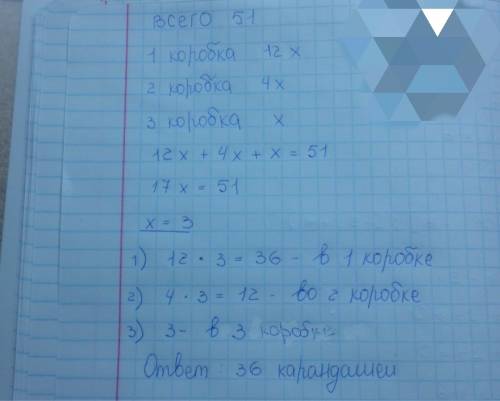 всего 51
1 коробка 12x
2 коробка 4x
3 коробка x
12x + 4x + x = 51
17x = 51
x = 3
1) 12 · 3 = 36 - в 1 коробке
2) 4 · 3 = 12 - во 2 коробке
3) 3 - в 3 коробке
Ответ: 36 карандашей